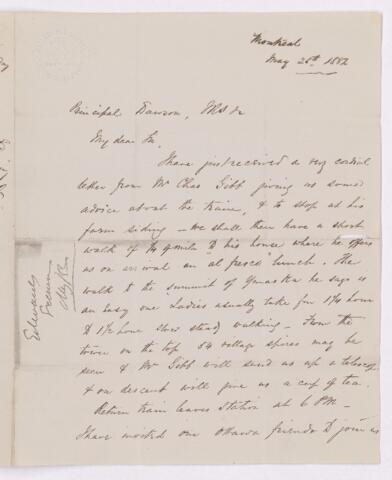 Montreal
May 26th 1882
Principal Dawson, FRS &c
My dear Sir,
I have just received a very cordial
letter from Mr Chas Gibb giving us some
advice about the train, & to stop at his
farm siding – we shall then have a short
walk of 1/4 mile to his house where he offers
us on arrival an "al fresco" lunch. The
walk to the summit of Yamaska he says is
an easy one Ladies usually take for 1 1/4 hour
to 1 1/2 hour slow steady walking – From the
tower on the top 34 village spires may be
seen & Mr Gibb will send us up a telescope
& on descent will give us a cup of tea.
Return train leaves Station at 6 PM –
I have invited our Ottawa friends to join us
Edwards